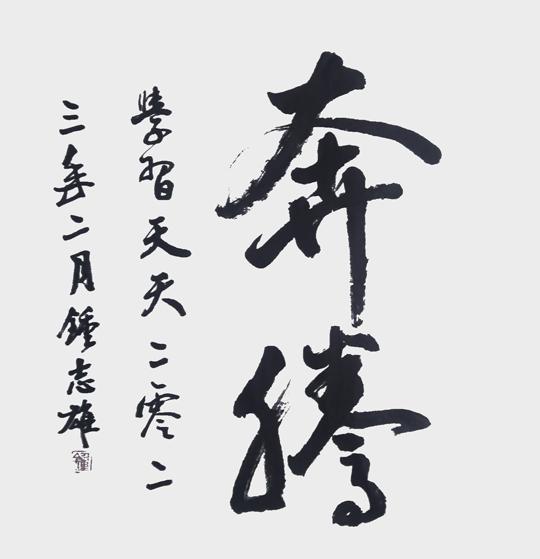 奔騰
學習天天二零二
三年二月鍾志雄